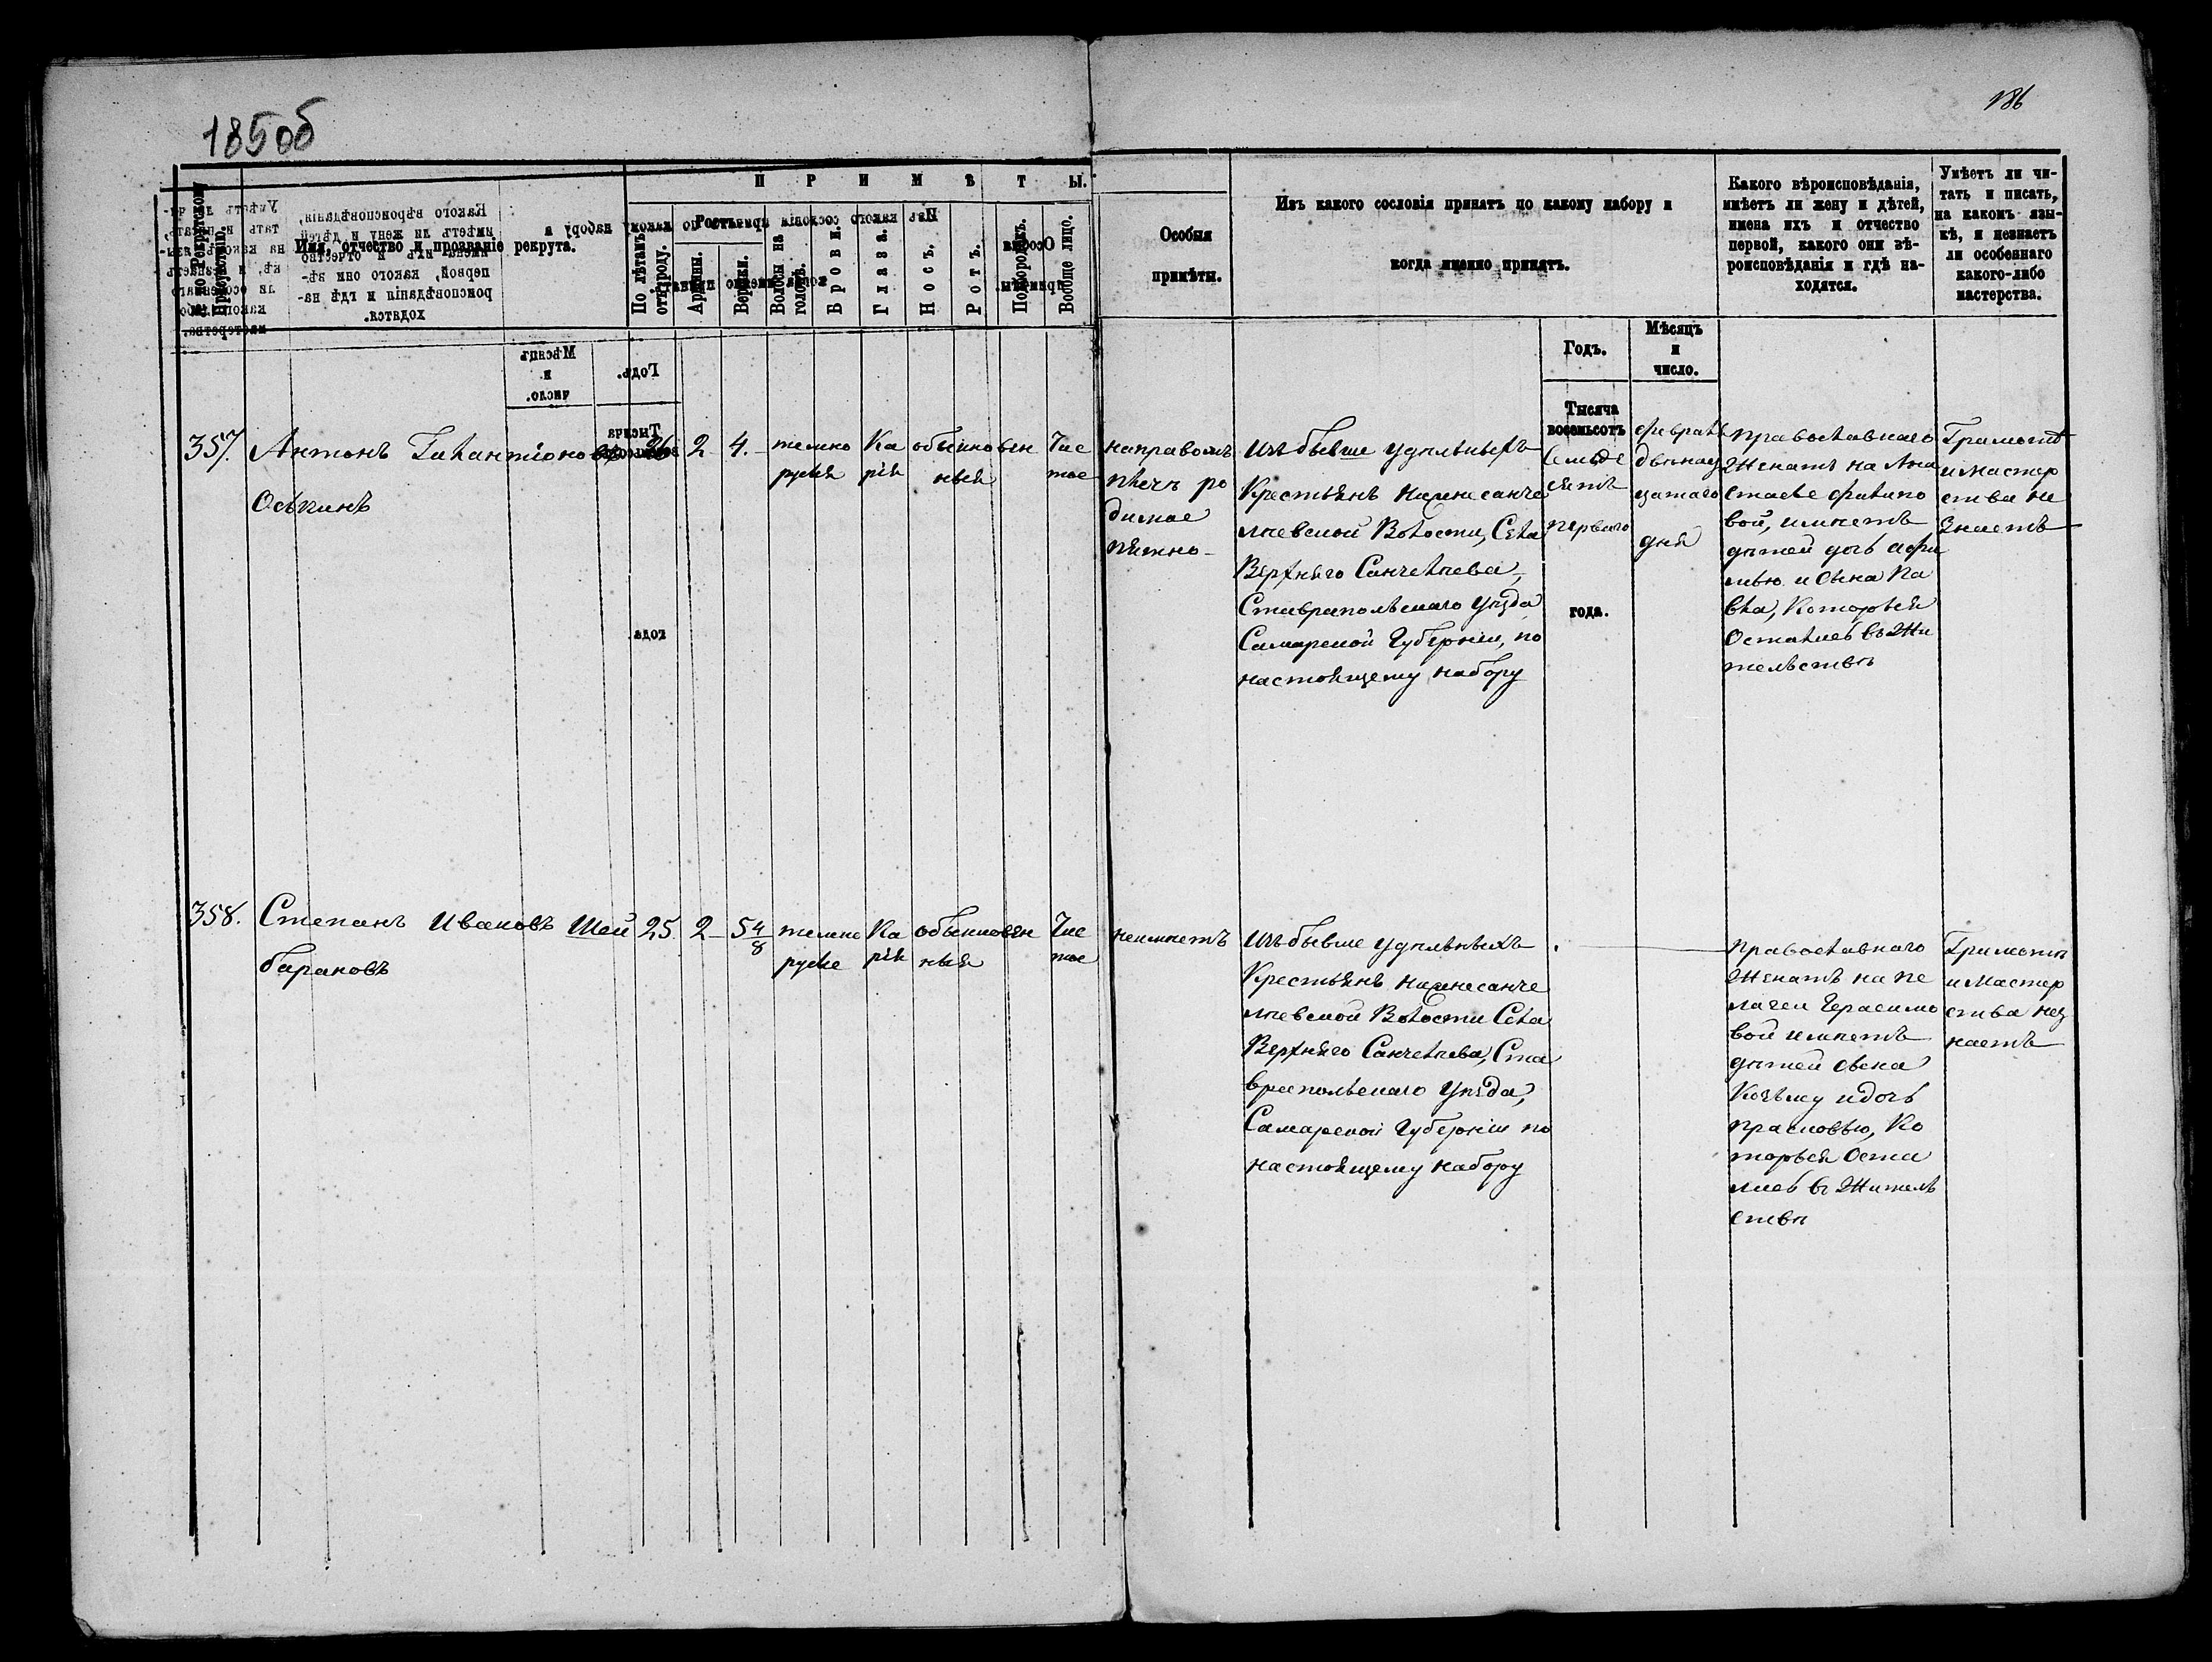 185об
186
П Р И М Ѣ Т Ы.
№ по Рекрутскому Присутствію.
Имя, отчество и прозваніе рекрута.
По лѣтамъ отъ роду.
Ростъ
Аршины.
Вершки.
Волосы на головѣ.
Брови.
Глаза.
Носъ.
Ротъ.
Подбородокъ.
Вообще лицо.
Особыя
примѣты.
Изъ какого сословія принятъ по какому набору и
когда именно принятъ.
Какого вѣроисповѣданія,
имѣетъ ли жену и дѣтей,
имена ихъ и отчество
первой, какого они вѣ-
роисповѣданія и гдѣ на-
ходятся.
Умѣетъ ли чи-
тать и писать,
на какомъ язы-
кѣ, и незнаетъ
ли особеннаго
какого-либо
мастерства.
Годъ.
Мѣсяцъ
и
число.
357.
Антонъ Галантіоновъ
Оськинъ
26
2
4.
темно
русыя
Ка
рія
обыкновен
ныя
Чис
тое
направомъ
плечѣ ро
димое
пятно
Изъ бывше удѣльныхъ
Крестьянъ Нижнесанче
лѣевской Волости, Села
Верхняго Санчелѣева,
Ставропольскаго уѣзда
Самарской Губерніи, по
настоящему набору
Тысяча
восемьсотъ
Семьде
сятъ
первого
года.
февраля
двѣнад
цатаго
дня
Православнаго
Женатъ на Ана
стасье Филипо
вой, имѣетъ
дѣтей дочь Афи
мью и сына Па
вла, которыя
Остались въ Жи
тельствѣ
Грамотѣ
и мастер
ства не
знаетъ
358.
Степанъ Ивановъ Шай
барановъ
25.
2
5 4/8
темно
русые
Ка
рія
обыкновен
ныя
Чис
тое
неимѣетъ
Изъ бывше удѣльныхъ
Крестьянъ Нижнесанче
лѣевской Волости Села
Верхняго Санчелѣева, Ста
вропольскаго уѣзда,
Самарской Губерніи по
настоящему набору
Православнаго
Женатъ на Пе
лагеи Герасимо
вой имѣетъ
дѣтей сына
Козьму и дочь
Прасковью, Ко
торыя Оста
лись въ Житель
ствѣ
Грамотѣ
и Мастер
ства нез
наетъ